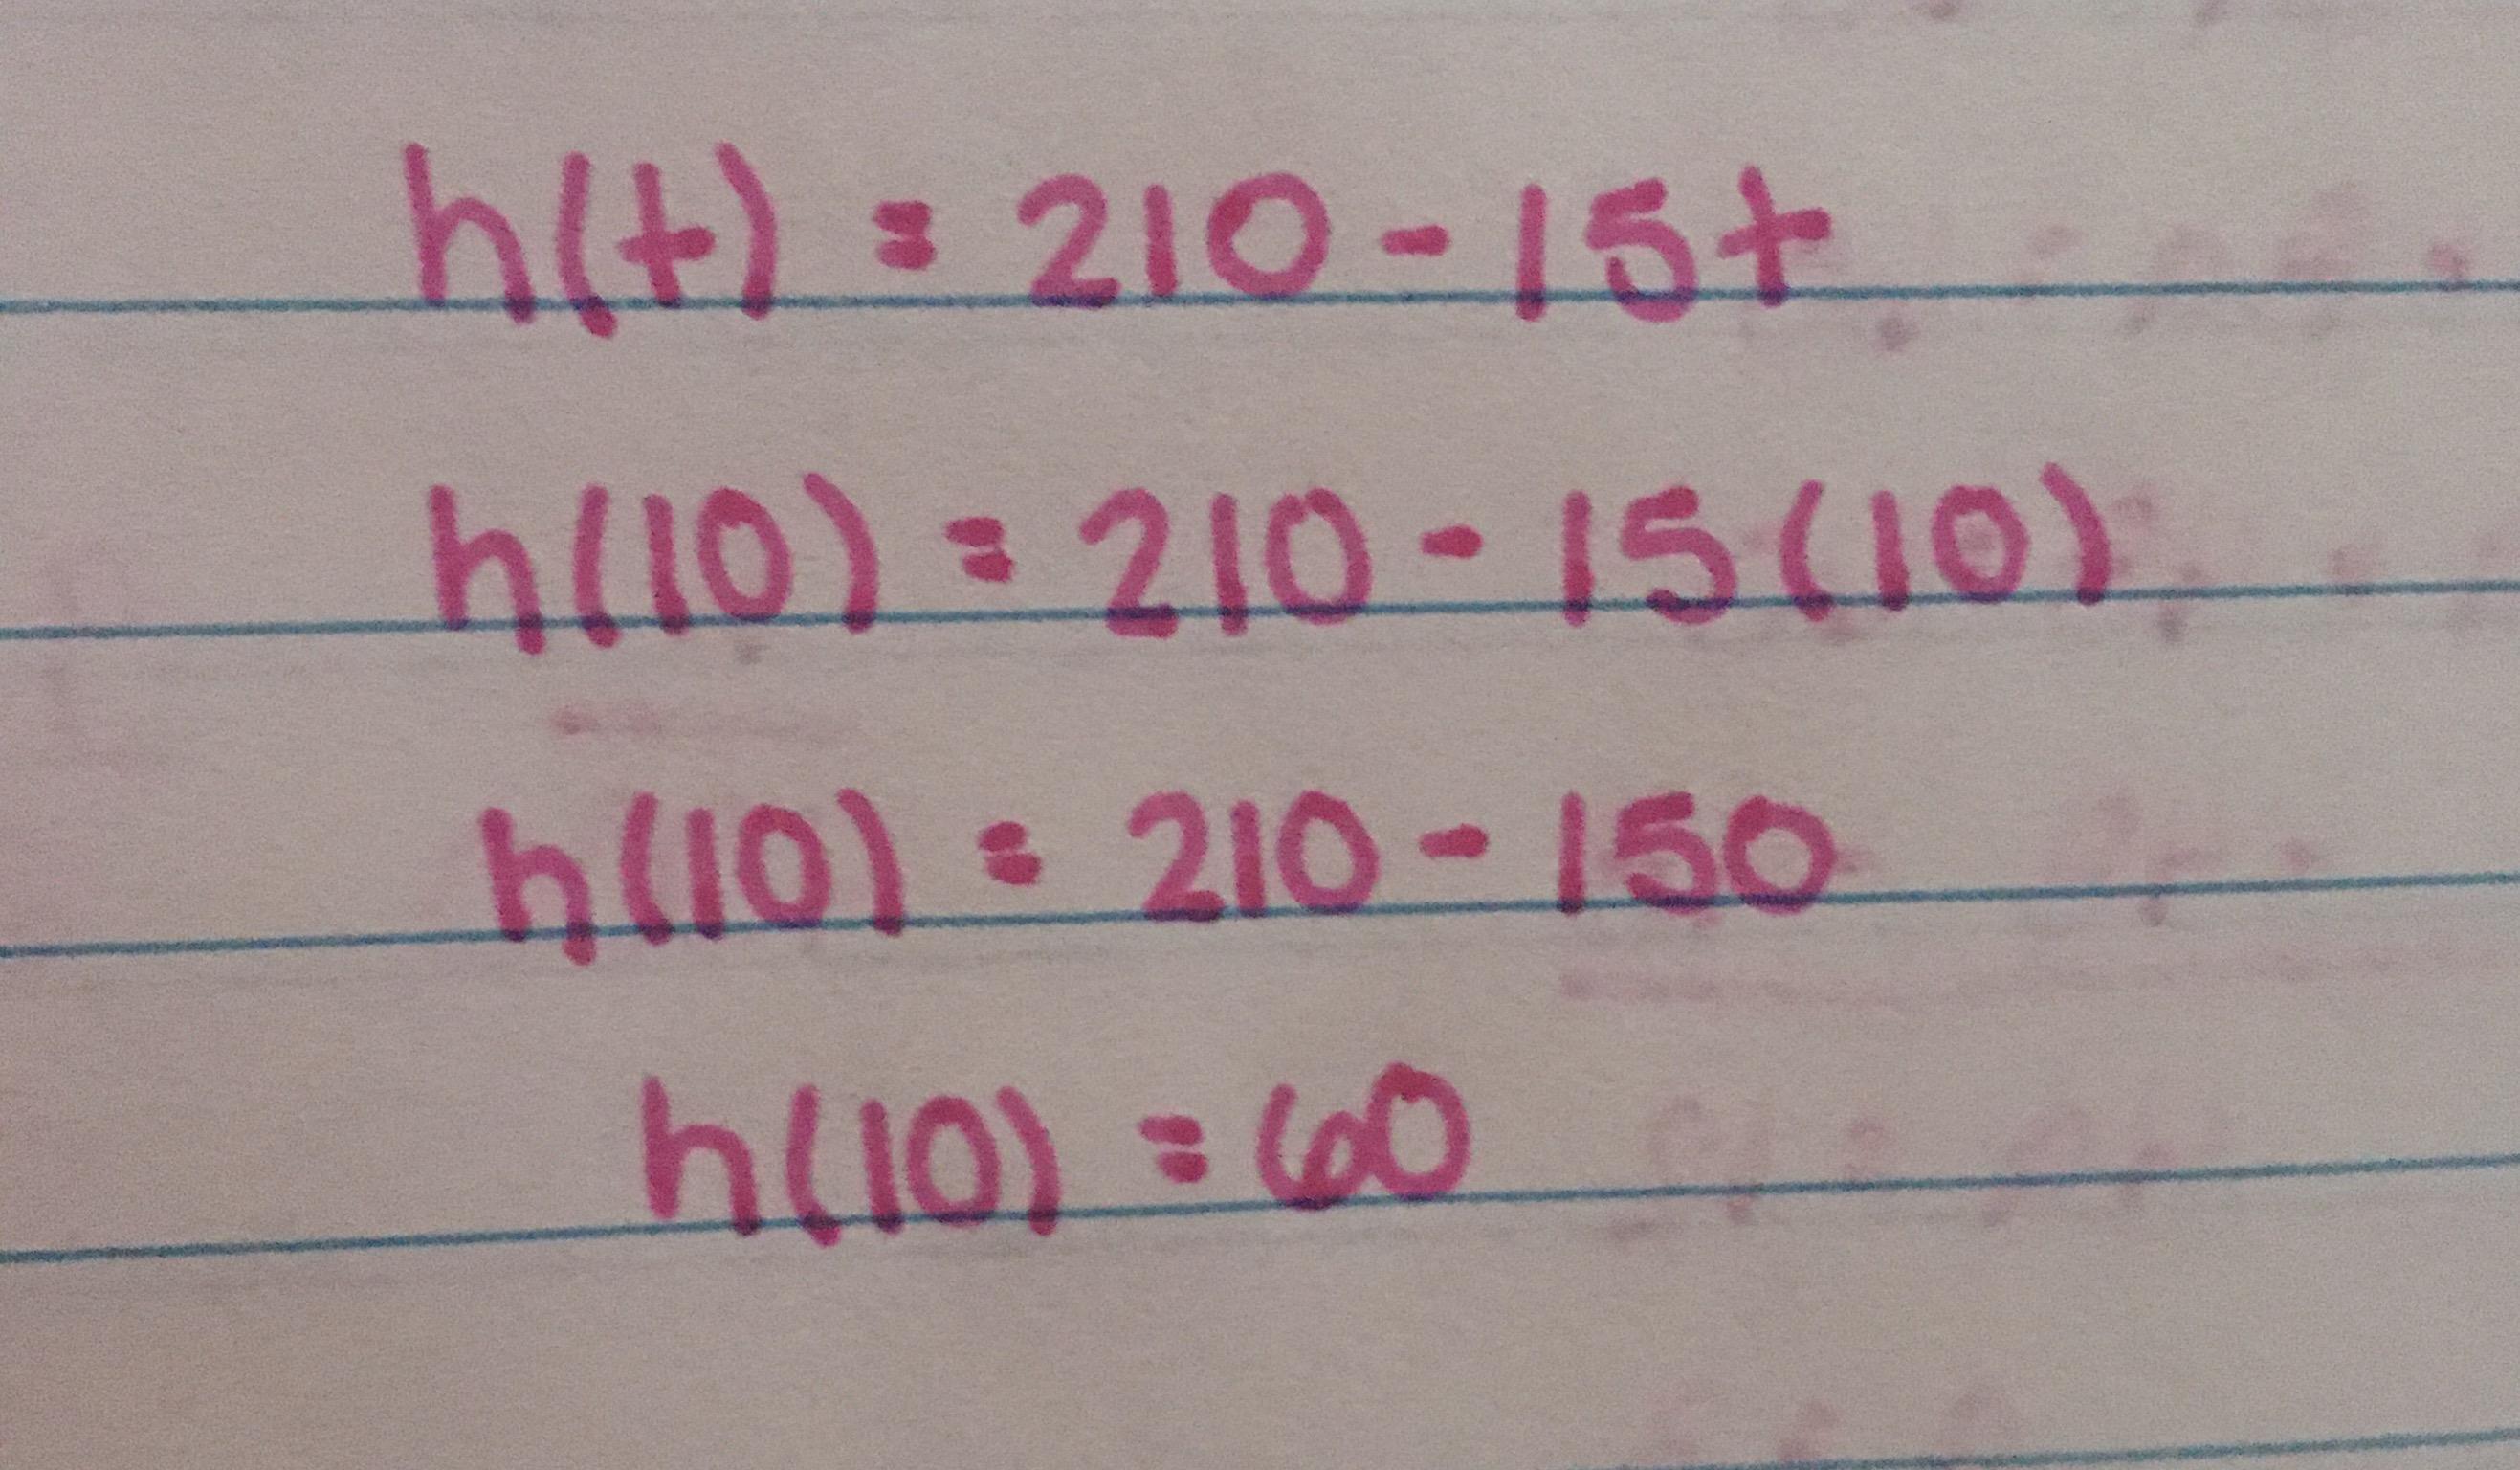 h(t) = 210 - 15t
h(10) = 210 - 15(10)
h(10) = 210 - 150
h(10) = 60